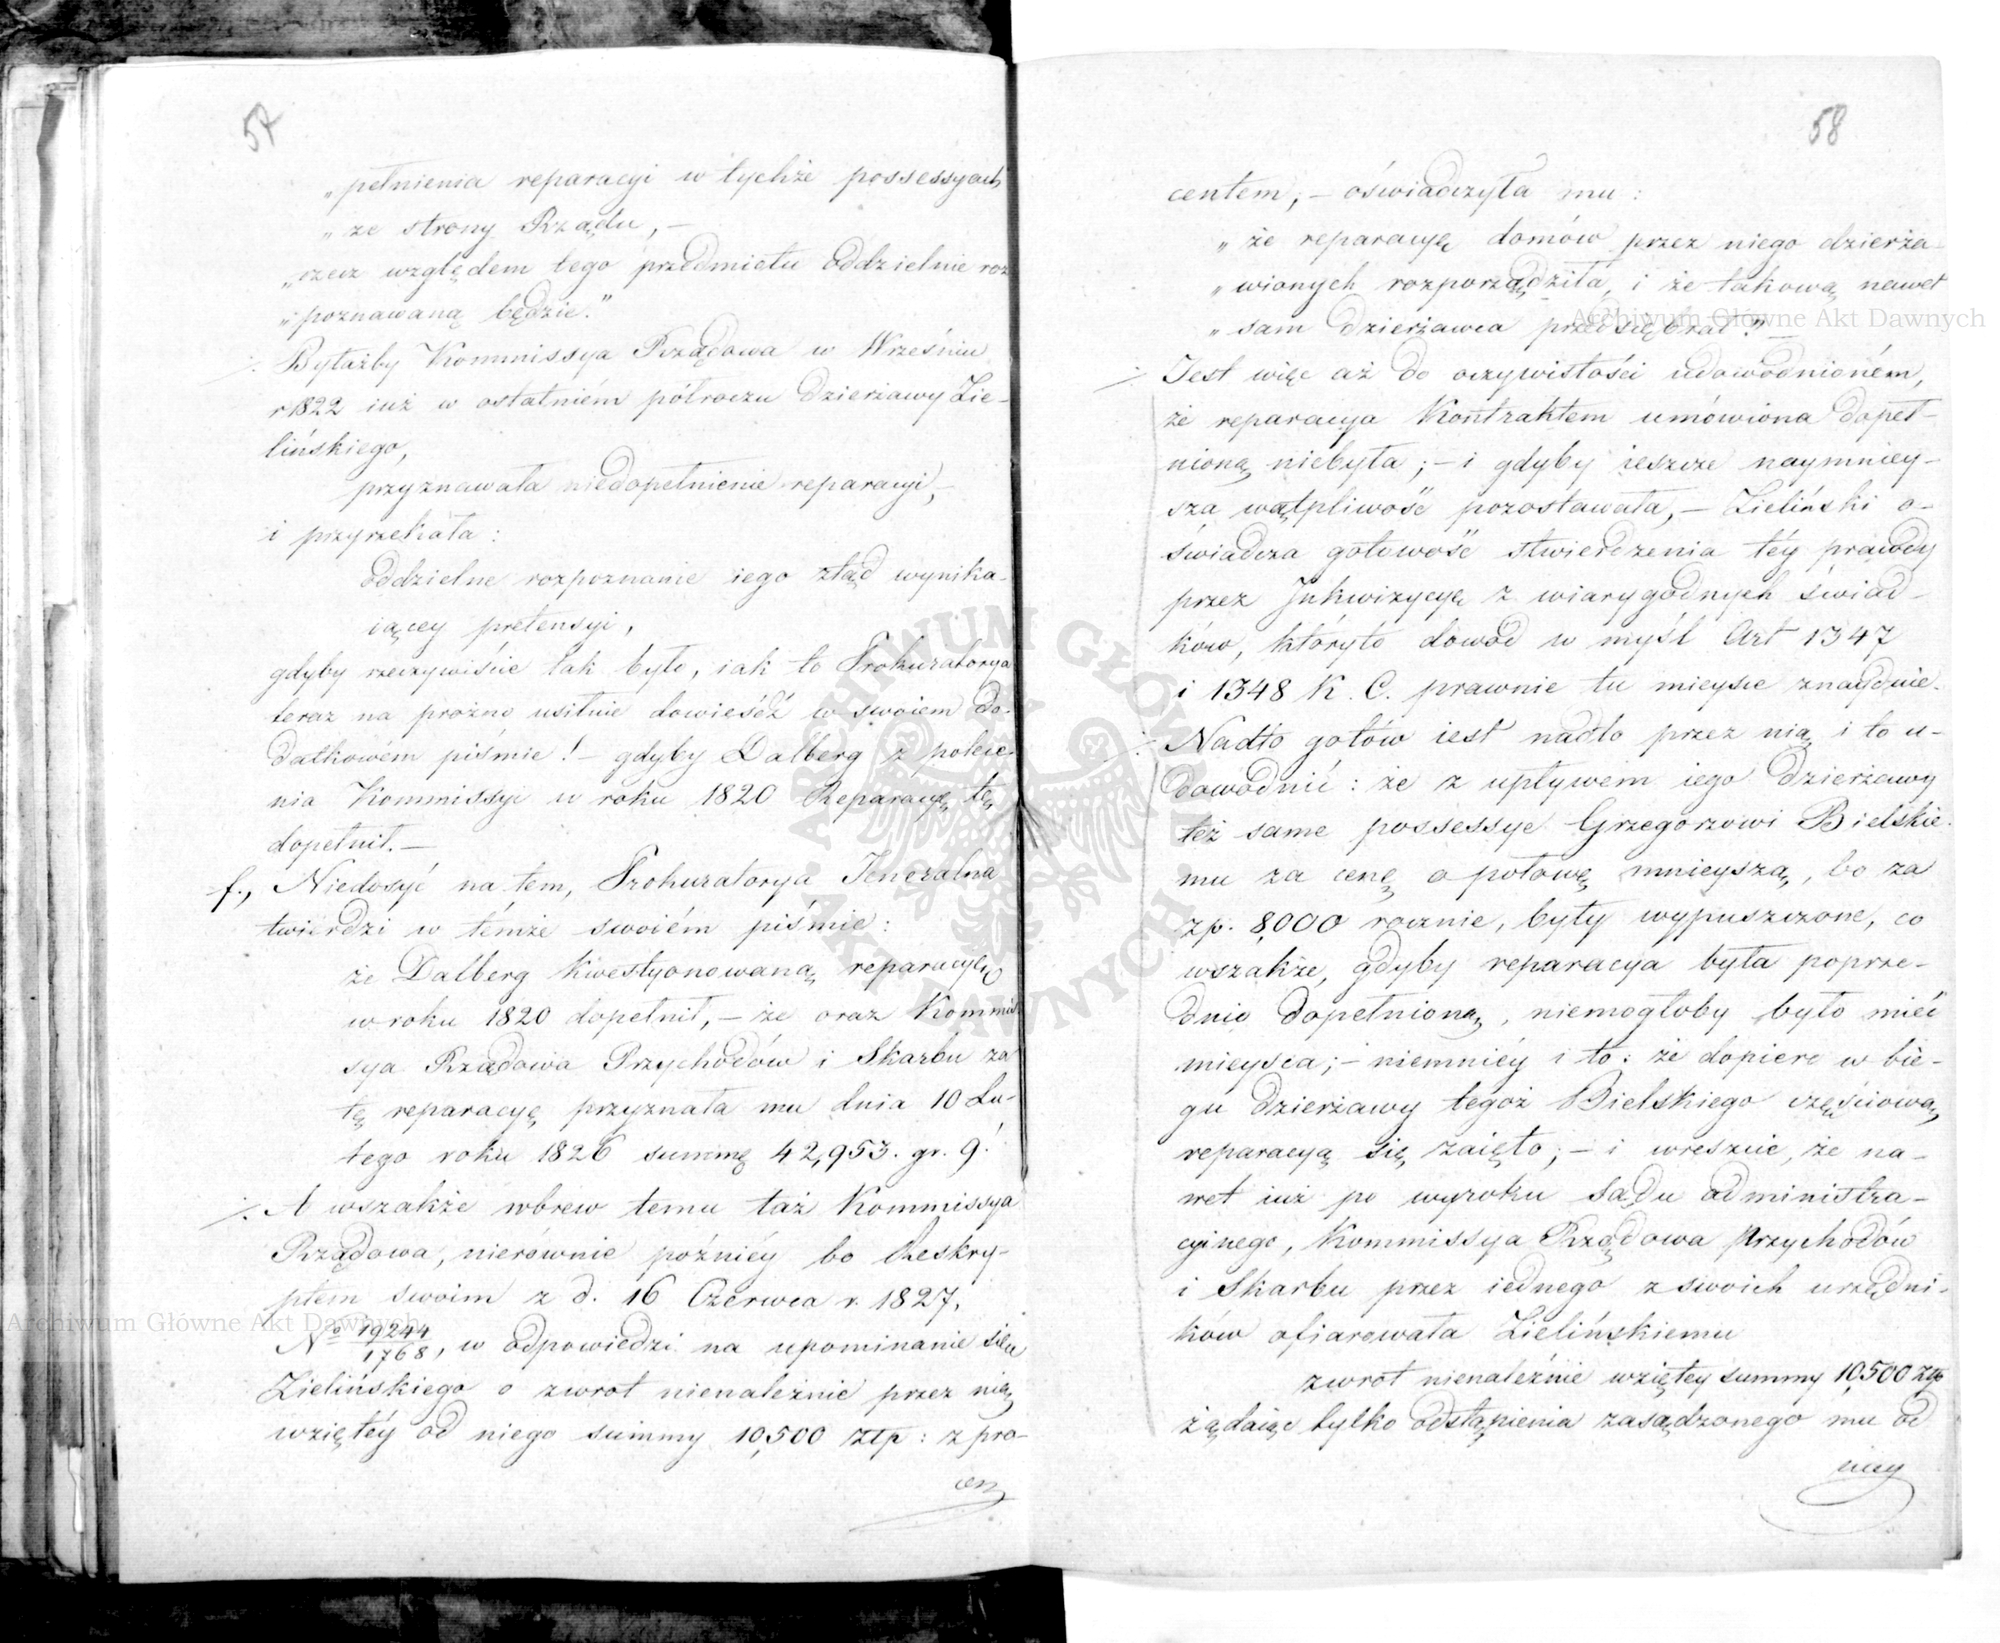 57
„pełnienia reparacyi w tychże possessyach
„ze strony Rządu, –
„rzecz względem tego przedmiotu oddzielnie roz
„poznawaną będzie."
Byłażby Kommissya Rządowa w Wrześniu
r 1822 iuż w ostatniém półroczu dzierżawy Zie-
lińskiego,
przyznawała niedopełnienie reparacyi, –
i przyrzekała:
oddzielne rozpoznanie iego ztąd wynika-
iącey pretensyi,
gdyby rzeczywiście tak było, iak to Prokuratorya
teraz na prożno usilnie dowieśdź w swoiem do-
datkowém piśmie! – gdyby Dalberg z polece
nia Kommissyi w roku 1820 Reparacyę tę
dopełnił. –
f., Niedosyć na tem, Prokuratorya Jeneralna
twierdzi w témże swoiém piśmie:
że Dalberg kwestyonowaną reparacyię
w roku 1820 dopełnił, – że oraz Kommis
sya Rządowa Przychodów i Skarbu za
tę reparacyę przyznała mu dnia 10 Lu-
tego roku 1826 summę 42,953. gr. 9!
A wszakże wbrew temu taż Kommissya
Rządowa, nierównie późniéy bo Reskry-
ptem swoim z d. 16 Czerwca r. 1827,
No 19244/1768, w odpowiedzi na upominanie się
Zielińskiego o zwrot nienależnie przez nią
wziętéy od niego summy 10,500 złp: z pro-
cen
58
centem, – oświadczyła mu:
„że reparacyę domów przez niego dzierża-
„wionych rozporządziła, i że takową nawet
„sam dzierżawca przedsiębrał." –
Jest więc aż do oczywistości udowodnioném,
że reparacya kontraktem umówiona dopeł-
nioną niebyła; – i gdyby ieszcze naymniey-
sza wątpliwość pozostawała, – Zieliński o-
świadcza gotowość stwierdzenia téy prawdy
przez Inkwizycyę z wiarygodnych świad-
ków, któryto dowód w myśl Art 1347
i 1348 K. C. prawnie tu mieysce znaydzie.
Nadto gotów iest nadto przez nią i to u-
dowodnić: że z upływem iego dzierżawy
też same possessye Grzegorzowi Bielskie-
mu za cenę o połowę mnieyszą, bo za
zp. 8,000 rocznie, były wypuszczone, co
wszakże, gdyby reparacya była poprze-
dnio dopełnioną, niemogłoby było mieć
mieysca; – niemniéy i to: że dopiero w bie-
gu dzierżawy tegoż Bielskiego częściową
reparacyą się zaięto; – i wreszcie, że na-
wet iuż po wyroku Sądu administra-
cyinego, Kommissya Rządowa Przychodów
i Skarbu przez iednego z swoich urzędni-
ków ofiarowała Zielińskiemu
zwrot nienależnie wziętey summy 10,500 złp
żądaiąc tylko odstąpienia zasądzonego mu od
Archiwum Główne Akt Dawnych
Archiwum Główne Akt Dawnych
ARCHIWUM GŁÓWNE AKT DAWNYCH